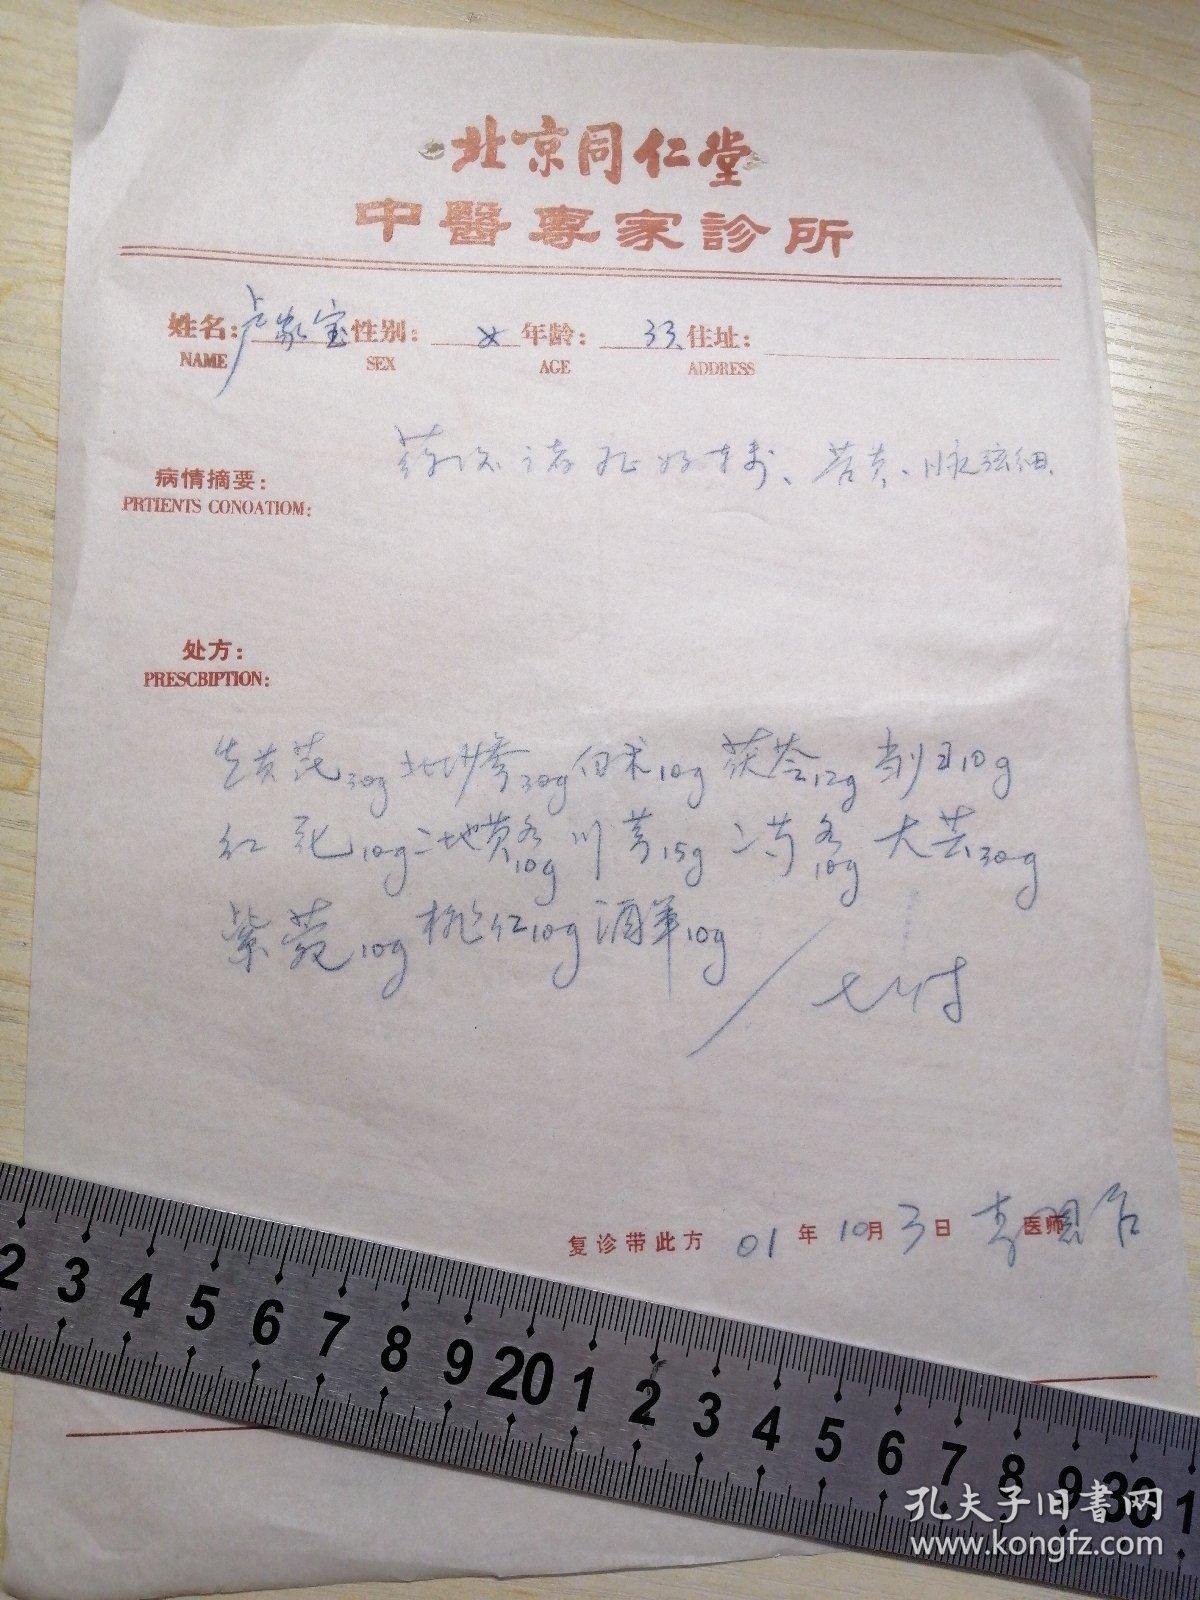 北京同仁堂
中醫專家診所
姓名：卢家宝 性别：女 年龄：33 住址：
NAME SEX AGE ADDRESS
药后诸症好转、苔黄、脉弦细.
病情摘要：
PRTIENTS CONOATIOM:
处方：
PRESCBIPTION:
生黄芪30g 北沙参30g 白术10g 茯苓12g 当归10g
红花10g 二地黄各10g 川芎15g 二芍各10g 大芸30g
紫菀10g 桃仁10g 酒军10g
七付
复诊带此方 01年10月3日 医师
2 3 4 5 6 7 8 9 20 1 2 3 4 5 6 7 8 9 30 1
孔夫子旧书网
www.kongfz.com